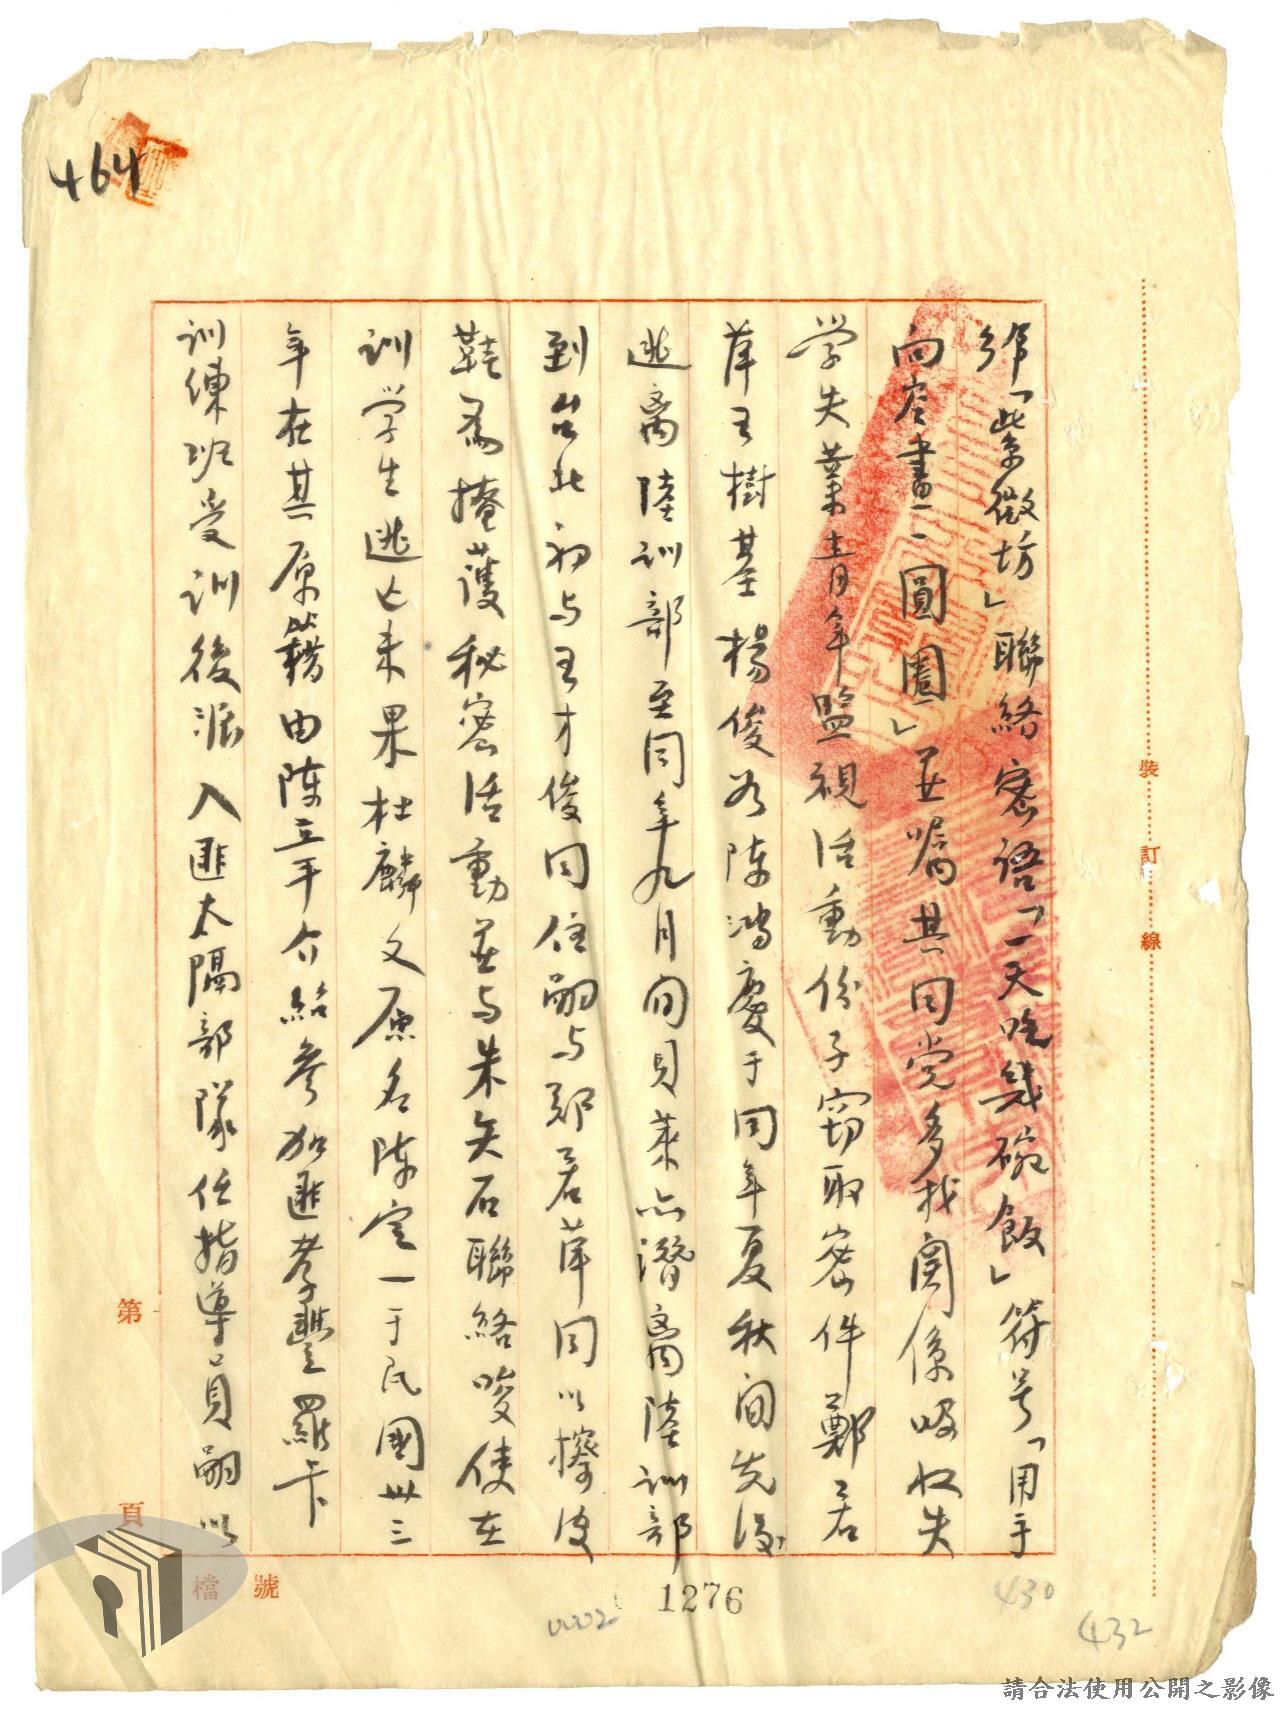 464
「紫微坊」聯絡密語「一天吃幾碗飯」符号「用手
向右畫一圓圈」並嘱其同党多找関係吸收失
学失業青年監視活動份子窃取密件鄭若
萍王樹基楊俊及陳鴻慶于同年夏秋间先後
逃离陸訓部至同年九月间貝萊亦潛离陸訓部
到台北初与王才俊同住嗣与鄭若萍同以擦皮
鞋為掩護秘密活動並与朱矢石聯絡唆使在
訓学生逃亡未果杜麟文原名陳定一于民國卅三
年在其原籍由陈立平介紹参加匪孝豐羅卡
訓練班受訓後派入匪太隔部隊任指導員嗣以
裝訂線
第
頁
檔號
1276
0002
430
432
請合法使用公開之影像